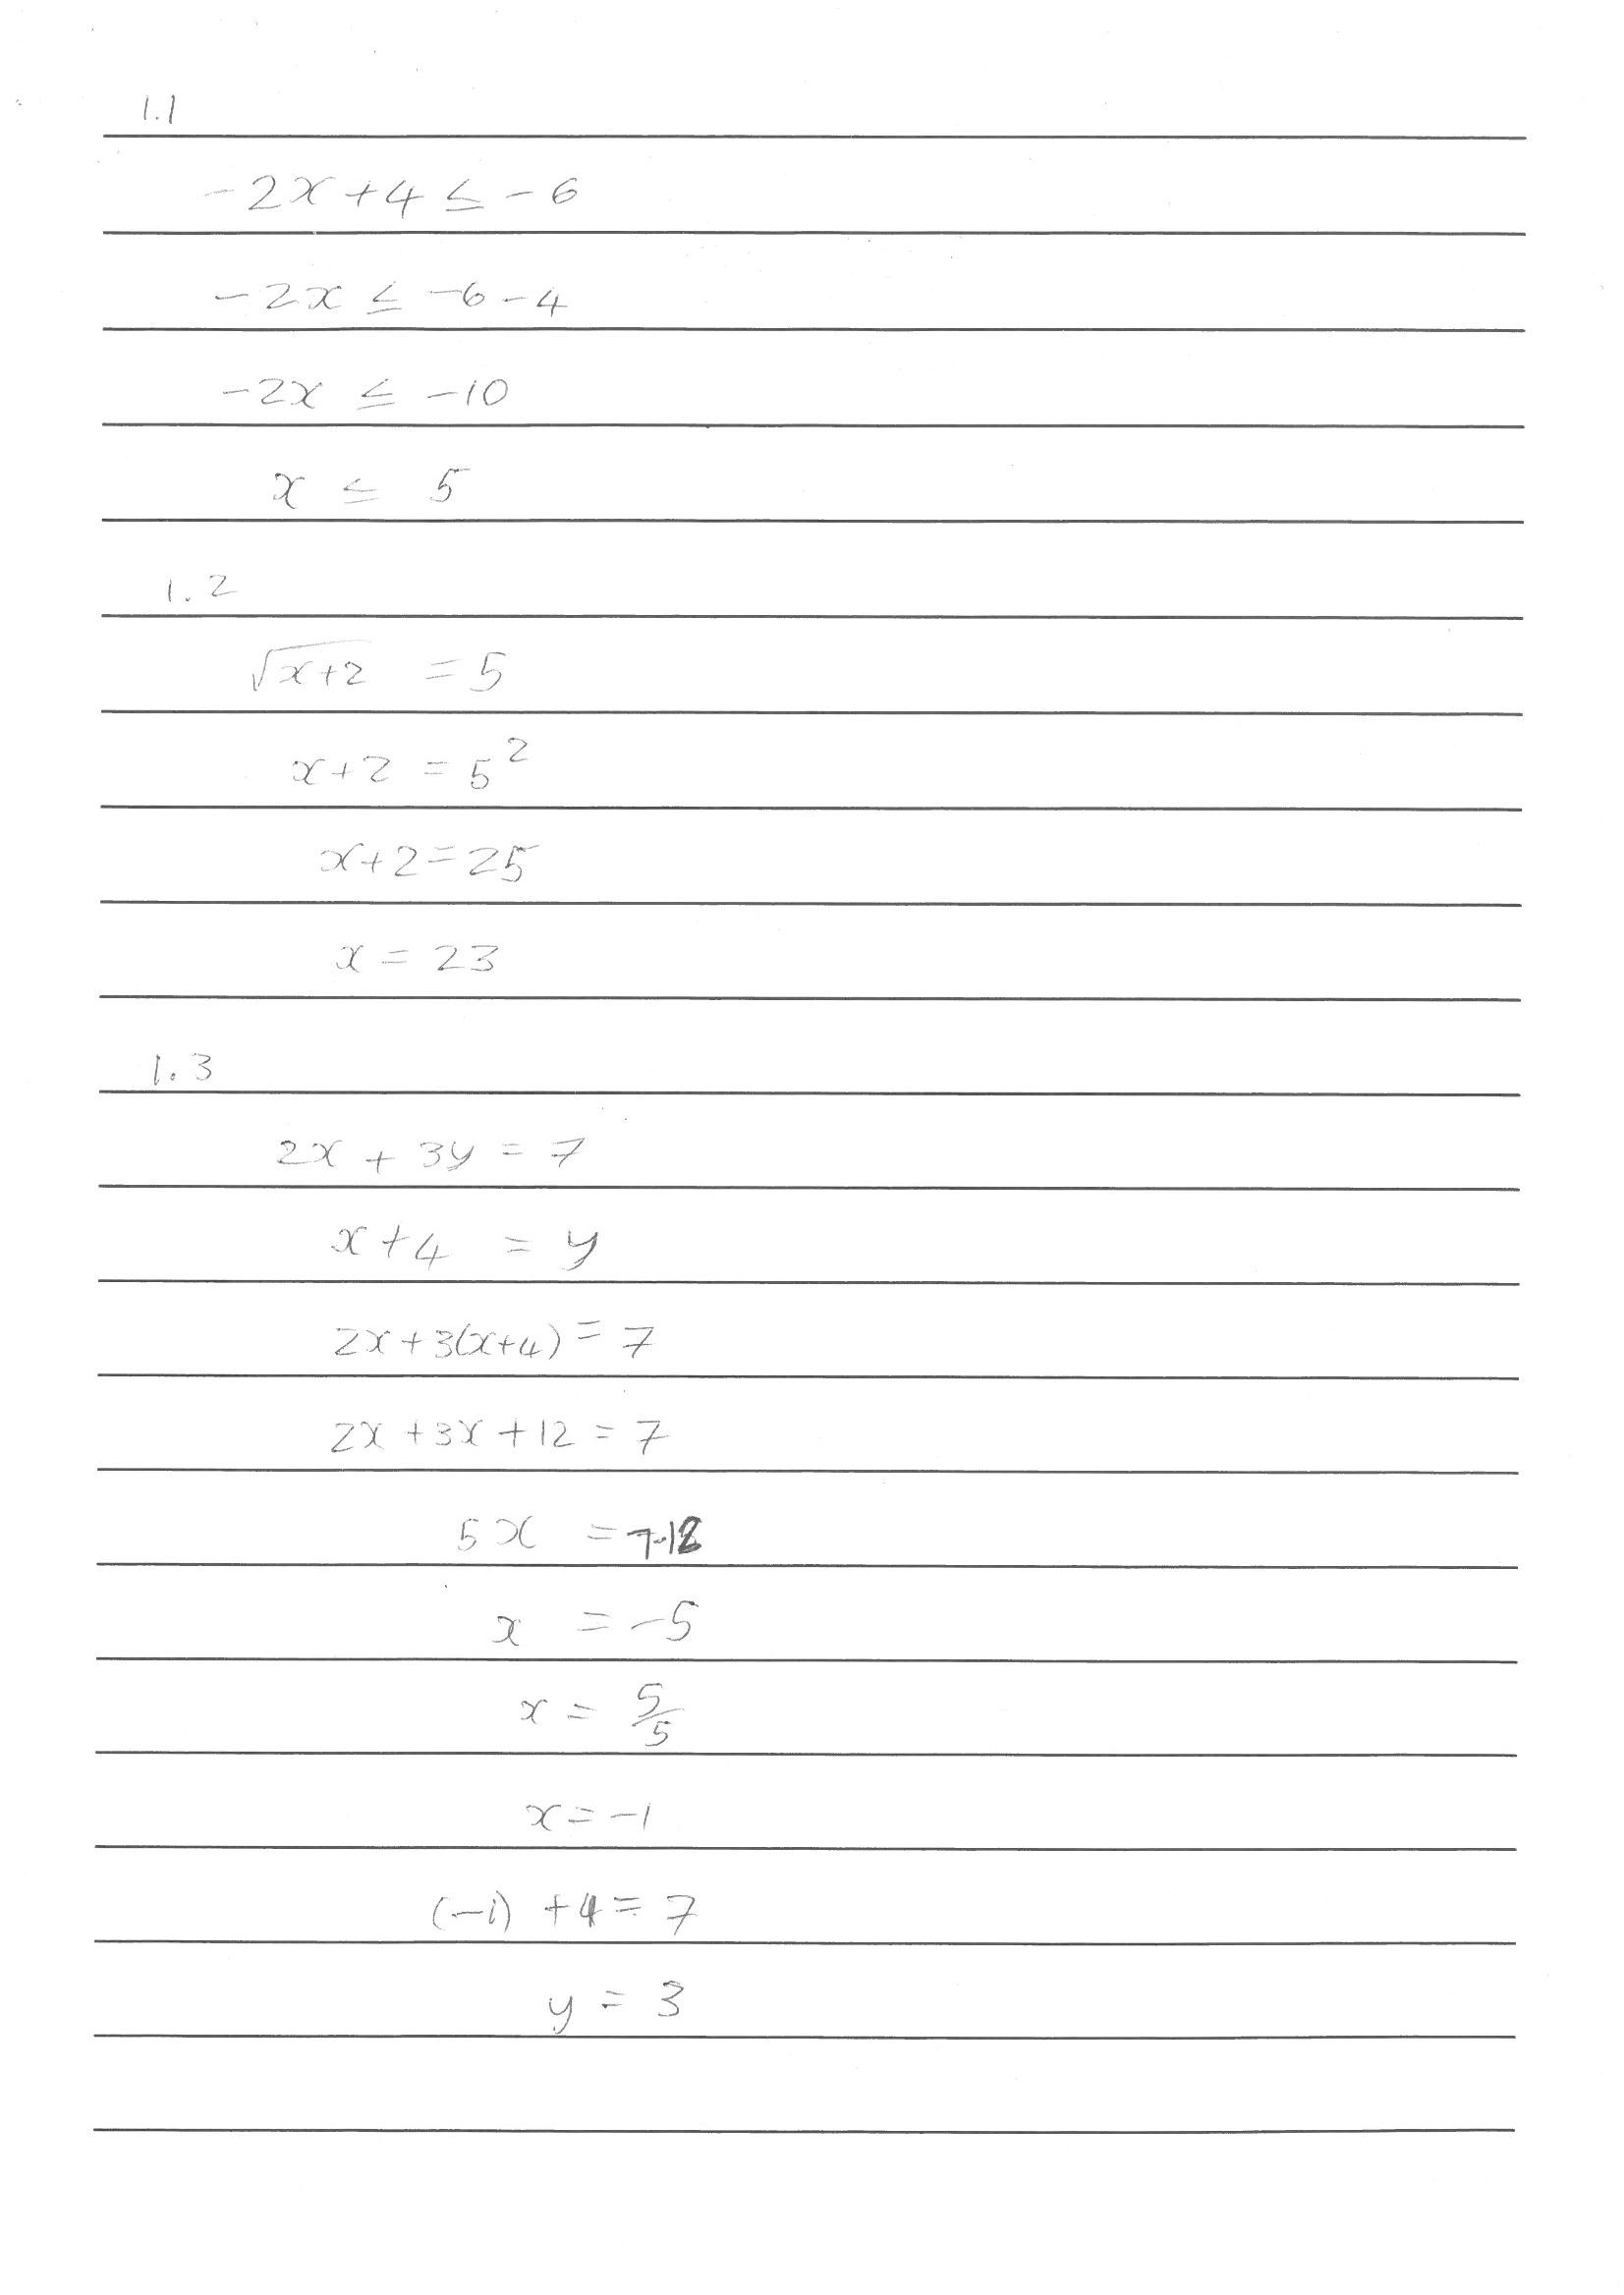 1.1
-2x+4 ≤ -6
-2x ≤ -6-4
-2x ≤ -10
x ≤ 5
1.2
√(x+2) = 5
x+2 = 5²
x+2=25
x = 23
1.3
2x + 3y = 7
x+4 = y
2x+3(x+4) = 7
2x+3x+12=7
5x = 7-12
x = -5
x = 5/5
x = -1
(-1) +4 = 7
y = 3